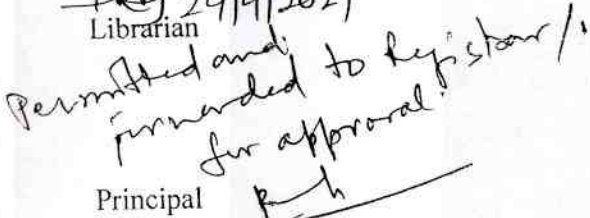 24/4/2021
Librarian
Permitted and
forwarded to Registrar/.
for approval.
Principal